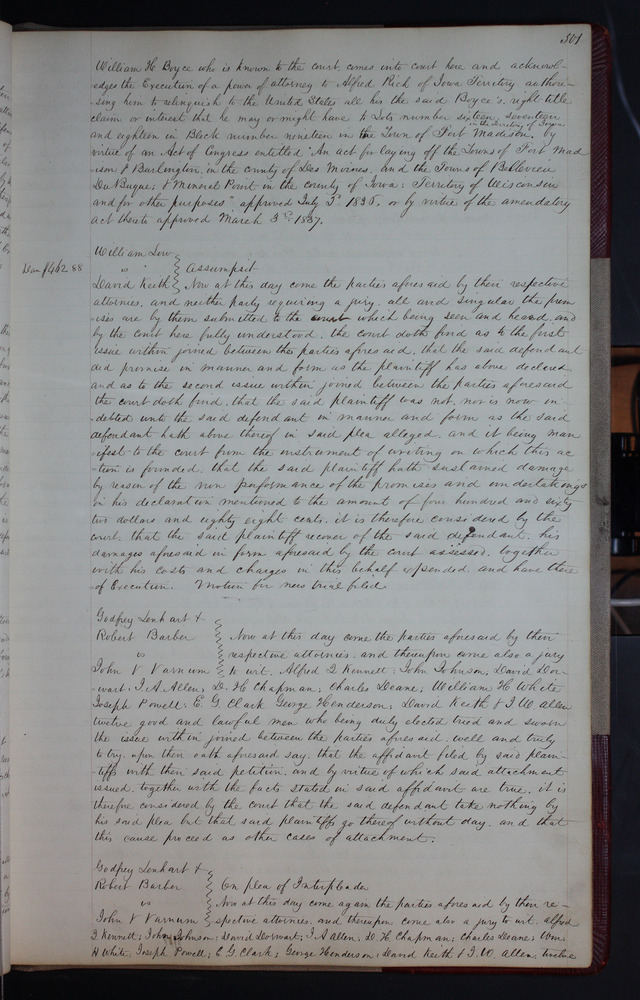 501
William H Boyce who is known to the court, comes into court here and acknowl-
edges the Execution of a power of attorney to Alfred Rich of Iowa Territory authori-
sing him to relinquish to the United States all his the said Boyce's right title
claim or interest that he may or might have to Lots number sixteen, seventeen
in the Territory of Iowa
and eighteen in Block number nineteen in the Town of Fort Madison, by
virtue of an Act of Congress entitled "An act for laying off the Towns of Fort Mad
ison & Burlington, in the county of Des Moines, and the Towns of Bellevieu
Du Buque, & Mineral Point in the county of Iowa; Territory of Wisconsin
and for other purposes" approved July 3d 1836, or by virtue of the amendatory
act thereto approved March 3rd 1837.
William Low
vs Assumpsit
Dam $462.88
David Keith Now at this day come the parties aforesaid by their respective
attornies, and neither party requiring a jury, all and singular the prem
ises are by them submitted to the court which being seen and heard, and
by the court here fully understood, the court doth find as to the first
issue within joined between the parties aforesaid, that the said defendant
did promise in manner and form as the plaintiff has above declared,
and as to the second issue within joined between the parties aforesaid
the court doth find, that the said plaintiff was not, nor is now in-
debted unto the said defendant in manner and form as the said
defendant hath above thereof in said plea alleged, and it being man
ifest to the court from the instrument of writing on which this ac
-tion is founded, that the said plaintiff hath sustained damage
by reason of the non performance of the promises and undertakings
in his declaration mentioned to the amount of four hundred and sixty
two dollars and eighty eight cents, it is therefore considered by the
court, that the said plaintiff recover of the said defendant, his
damages aforesaid in form aforesaid by the court assessed, together
with his costs and charges in this behalf expended, and have there
of Execution. Motion for new trial filed
Godfrey Lenhart &
Robert Barber Now at this day come the parties aforesaid by their
vs respective attornies, and thereupon come also a jury
John V Varnum to wit, Alfred I Kennett; John Johnson; David Dor-
wart; J. A Allen; D. H Chapman; Charles Deane; William H White
Joseph Powell; E. G. Clark George Henderson; David Keith & J. W Allen
twelve good and lawful men who being duly elected tried and sworn
the issue within joined between the parties aforesaid, well and truly
to try, upon their oath aforesaid say, that the affidavit filed by said plain-
-tiffs with their said petition, and by virtue of which said attachment
issued, together with the facts stated in said affidavit are true, it is
therefore considered by the court that the said defendant take nothing by
his said plea but that said plaintiffs go thereof without day, and that
this cause proceed as other cases of attachment.
Godfrey Lenhart &
Robert Barber On plea of Interpleader
vs Now at this day come again the parties aforesaid by their re-
John V Varnum spective attornies, and thereupon come also a jury to wit, Alfred
I Kennett; John Johnson; David Dorwart; J. A Allen; D. H Chapman; Charles Deane; Wm
H White; Joseph Powell; E. G. Clark; George Henderson; David Keith & J. W. Allen, twelve